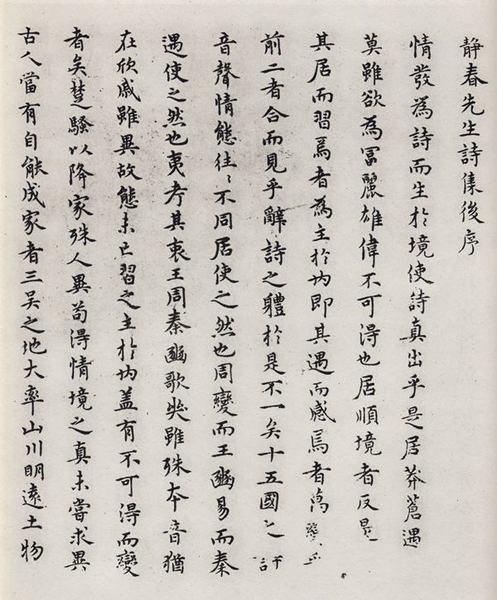 静春先生詩集後序
情發為詩而生於境使詩真出乎是居莽蒼遇
莫雖欲為冨麗雄偉不可得也居順境者反是
其居而習焉者為主於内即其遇而感焉者萬
前二者合而見乎辭詩之軆於是不一矣十五國之
音聲情態往〻不同居使之然也周變而王豳易而秦
遇使之然也夷考其衷王周秦豳歌哭雖殊本音猶
在欣戚雖異故態未亡習之主於内盖有不可得而變
者矣楚騷以降家殊人異苟得情境之真未嘗求異
古人當有自能成家者三吴之地大率山川明遠土物